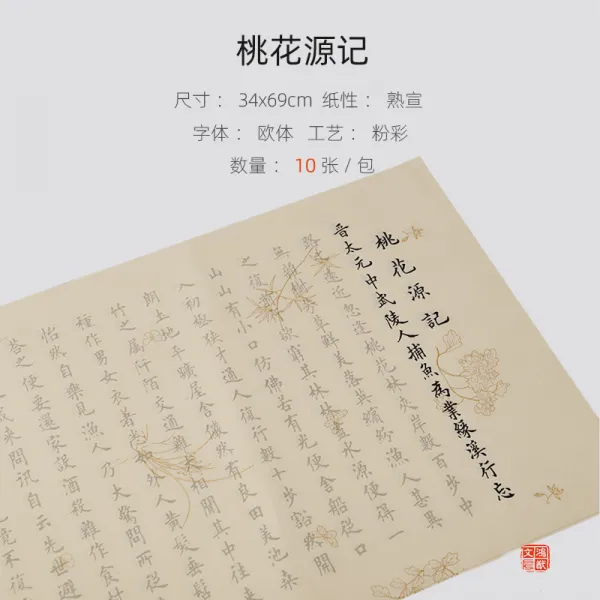 桃花源记
尺寸： 34x69cm 纸性： 熟宣
字体： 欧体 工艺： 粉彩
数量： 10 张 / 包
桃花源記
晋太元中武陵人捕魚為業緣溪行忘
路之遠近忽逢桃花林夾岸數百步中
無雜樹芳草鮮美落英繽紛漁人甚異
之復前行欲窮其林林盡水源便得一
山山有小口仿佛若有光便舍船從口
入初極狹才通人復行數十步豁然開
朗土地平曠屋舍儼然有良田美池桑
竹之屬阡陌交通雞犬相聞其中往來
種作男女衣著悉如外人黃髮垂髫
怡然自樂見漁人乃大驚問所從
答之便要還家設酒殺雞作食村
咸來問訊自云先世避